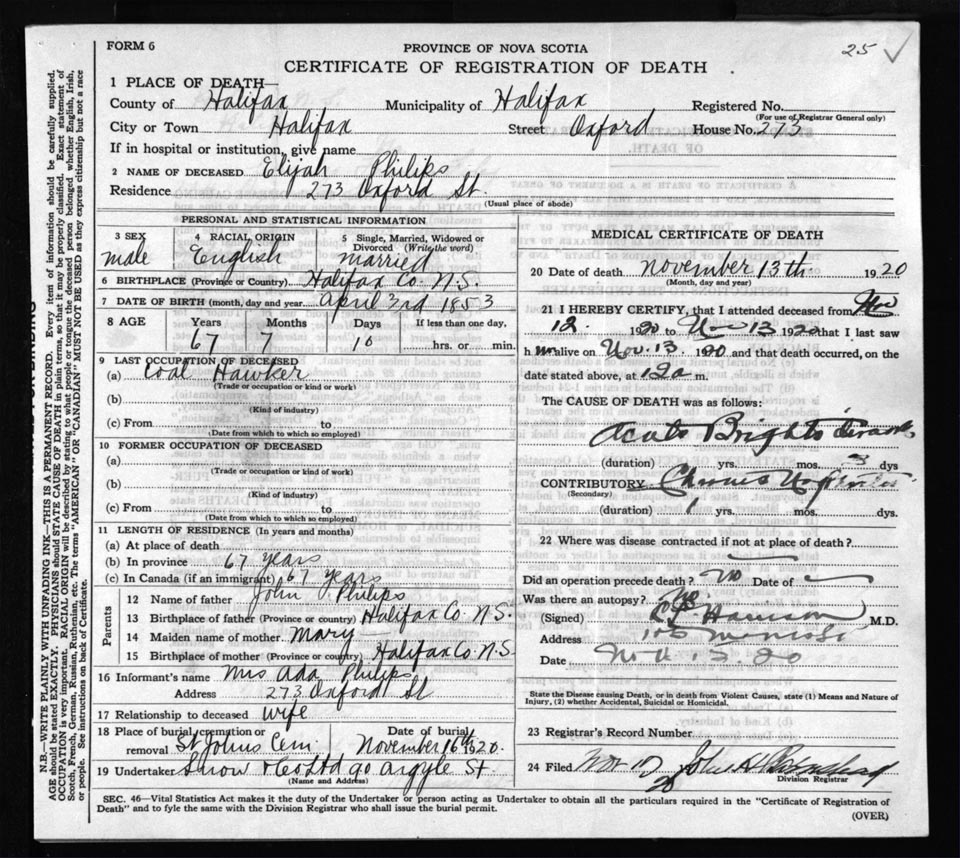 FORM 6
PROVINCE OF NOVA SCOTIA
25 ✓
CERTIFICATE OF REGISTRATION OF DEATH
1 PLACE OF DEATH
County of Halifax Municipality of Halifax Registered No.
(For use of Registrar General only)
City or Town Halifax Street Oxford House No. 273
If in hospital or institution, give name
2 NAME OF DECEASED Elijah Philips
Residence 273 Oxford St.
(Usual place of abode)
PERSONAL AND STATISTICAL INFORMATION
3 SEX 4 RACIAL ORIGIN 5 Single, Married, Widowed or Divorced (Write the word)
male English married
6 BIRTHPLACE (Province or Country) Halifax Co. N.S.
7 DATE OF BIRTH (month, day and year) April 3rd 1853
8 AGE Years Months Days If less than one day,
67 7 10 hrs. or min.
9 LAST OCCUPATION OF DECEASED
(a) Coal Hawker
(Trade or occupation or kind of work)
(b)
(Kind of industry)
(c) From to
(Date from which to which so employed)
10 FORMER OCCUPATION OF DECEASED
(a)
(Trade or occupation or kind of work)
(b)
(Kind of industry)
(c) From to
(Date from which to which so employed)
11 LENGTH OF RESIDENCE (In years and months)
(a) At place of death
(b) In province 67 years
(c) In Canada (if an immigrant) 67 years
Parents
12 Name of father John Philips
13 Birthplace of father (Province or country) Halifax Co. N.S.
14 Maiden name of mother Mary
15 Birthplace of mother (Province or country) Halifax Co N.S.
16 Informant's name Mrs Ada Philips
Address 273 Oxford St
17 Relationship to deceased wife
18 Place of burial, cremation or removal St Johns Cem Date of burial November 16th 1920.
19 Undertaker Snow & Co Ltd 90 Argyle St
(Name and Address)
MEDICAL CERTIFICATE OF DEATH
20 Date of death November 13th 1920
(Month, day and year)
21 I HEREBY CERTIFY, that I attended deceased from Nov
12 1920 to Nov 13 1920 that I last saw
h im alive on Nov. 13 1920 and that death occurred, on the
date stated above, at 12 a m.
The CAUSE OF DEATH was as follows:
Acute Brights disease
(duration) yrs. mos. 3 dys
CONTRIBUTORY Chronic
(Secondary)
(duration) 1 yrs. mos. dys.
22 Where was disease contracted if not at place of death?
Did an operation precede death? No Date of
Was there an autopsy? No
(Signed) M.D.
Address
Date Nov. 13. 20
State the Disease causing Death, or in death from Violent Causes, state (1) Means and Nature of
Injury, (2) whether Accidental, Suicidal or Homicidal.
23 Registrar's Record Number
24 Filed Nov 17 20 John H
Division Registrar
SEC. 46—Vital Statistics Act makes it the duty of the Undertaker or person acting as Undertaker to obtain all the particulars required in the "Certificate of Registration of
Death" and to fyle the same with the Division Registrar who shall issue the burial permit.
(OVER)
N.B.—WRITE PLAINLY WITH UNFADING INK—THIS IS A PERMANENT RECORD. Every item of information should be carefully supplied.
AGE should be stated EXACTLY. PHYSICIANS should STATE CAUSE OF DEATH in plain terms, so that it may be properly classified. Exact statement of
OCCUPATION is very important. RACIAL ORIGIN will be described by stating to what people or tongue the deceased person belonged whether English, Irish,
Scotch, French, German, Russian, Ruthenian, etc. The terms "AMERICAN" OR "CANADIAN" MUST NOT BE USED as they express citizenship but not a race
or people. See instructions on back of Certificate.